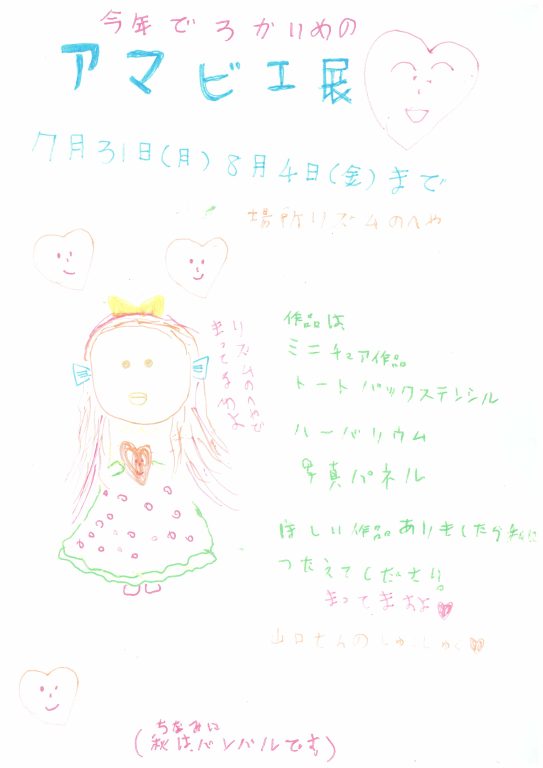 今年でろかいめの
アマビエ展
7月31日(月)8月4日(金)まで
場所リズムのへや
リズムのへやで
まってるわよ
作品は
ミニチュア作品
トートバックステンシル
ハーバリウム
写真パネル
ほしい作品ありましたら私に
つたえてください。
まってますよ
山口さんの
ちなみに
(秋はバンバルです)